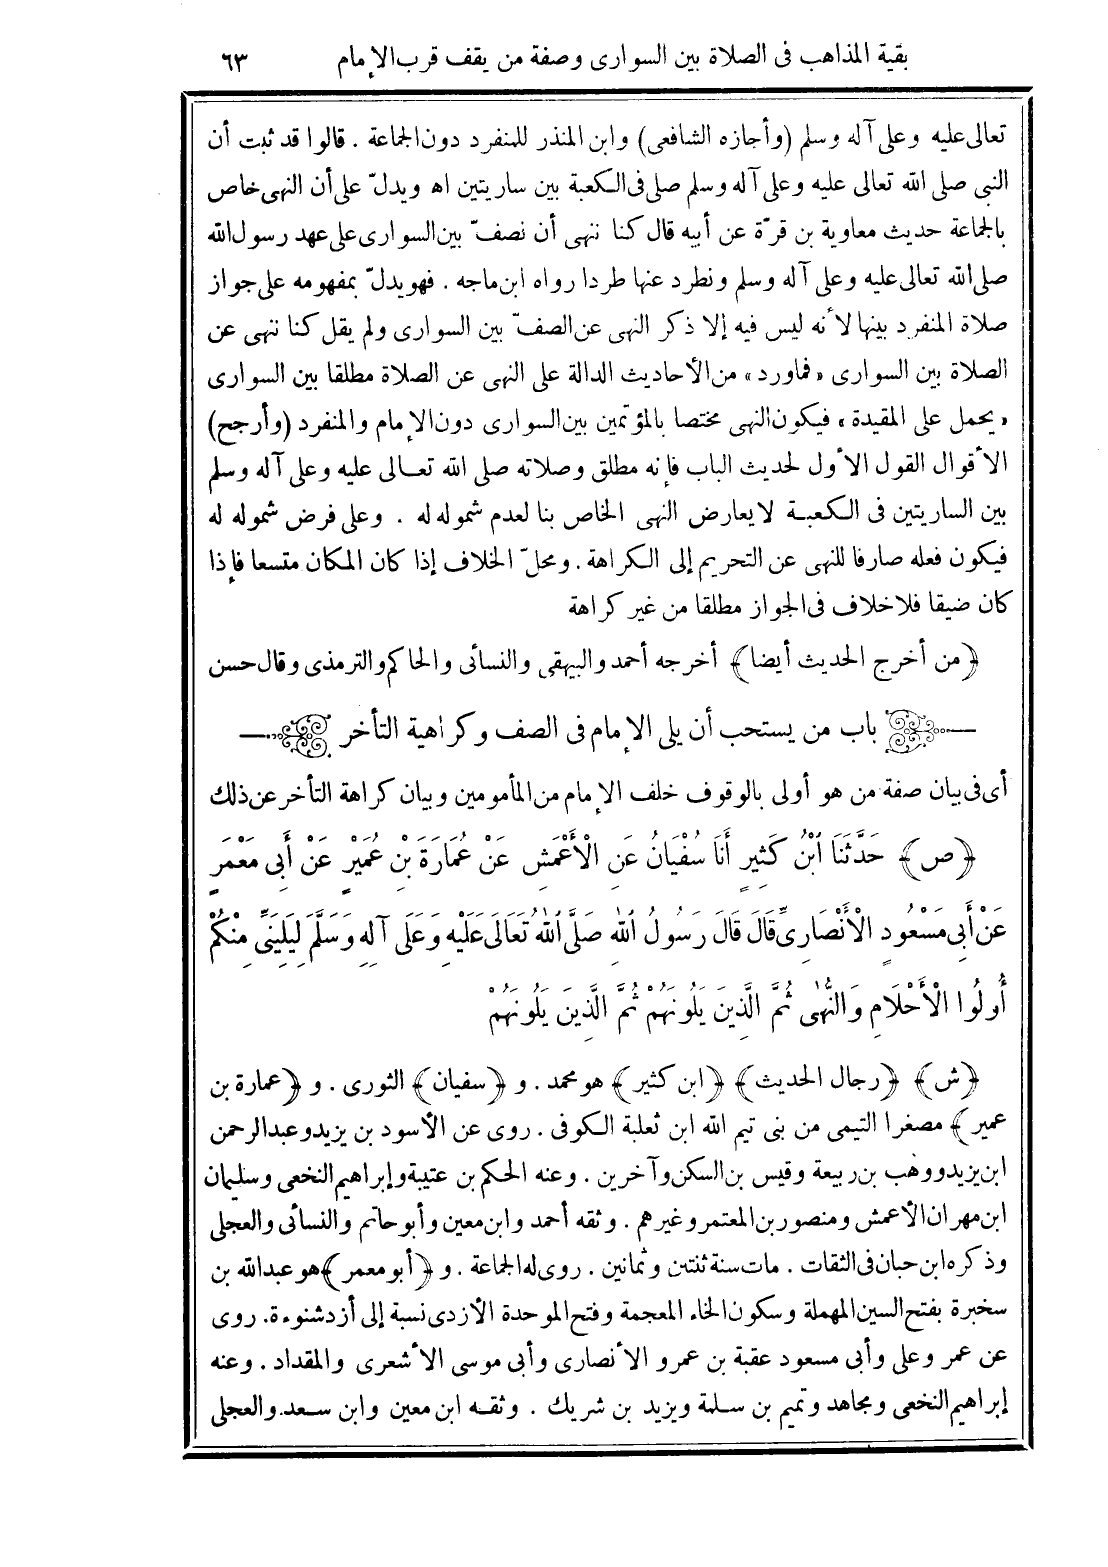 بقية المذاهب فى الصلاة بين السوارى وصفة من يقف قرب الإمام ٦٣
تعالى عليه وعلى آله وسلم (وأجازه الشافعى) وابن المنذر للمنفرد دون الجماعة . قالوا قد ثبت أن
النبى صلى الله تعالى عليه وعلى آله وسلم صلى فى الكعبة بين ساريتين اه ويدلّ على أن النهى خاص
بالجماعة حديث معاوية بن قرّة عن أبيه قال كنا ننهى أن نصفّ بين السوارى على عهد رسول الله
صلى الله تعالى عليه وعلى آله وسلم ونطرد عنها طردا رواه ابن ماجه . فهو يدلّ بمفهومه على جواز
صلاة المنفرد بينها لأنه ليس فيه إلا ذكر النهى عن الصفّ بين السوارى ولم يقل كنا ننهى عن
الصلاة بين السوارى «فما ورد» من الأحاديث الدالة على النهى عن الصلاة مطلقا بين السوارى
«يحمل على المقيدة» فيكون النهى مختصا بالمؤتمين بين السوارى دون الإمام والمنفرد (وأرجح)
الأقوال القول الأول لحديث الباب فإنه مطلق وصلاته صلى الله تعالى عليه وعلى آله وسلم
بين الساريتين فى الكعبة لا يعارض النهى الخاص بنا لعدم شموله له . وعلى فرض شموله له
فيكون فعله صارفا للنهى عن التحريم إلى الكراهة . ومحلّ الخلاف إذا كان المكان متسعا فإذا
كان ضيقا فلا خلاف فى الجواز مطلقا من غير كراهة
﴿من أخرج الحديث أيضا﴾ أخرجه أحمد والبيهقى والنسائى والحاكم والترمذى وقال حسن
باب من يستحب أن يلى الإمام فى الصف وكراهية التأخر
أى فى بيان صفة من هو أولى بالوقوف خلف الإمام من المأمومين وبيان كراهة التأخر عن ذلك
﴿ص﴾ حَدَّثَنَا ابْنُ كَثِيرٍ أَنَا سُفْيَانُ عَنِ الْأَعْمَشِ عَنْ عُمَارَةَ بْنِ عُمَيْرٍ عَنْ أَبِى مَعْمَرٍ
عَنْ أَبِى مَسْعُودٍ الْأَنْصَارِىِّ قَالَ قَالَ رَسُولُ اللهِ صَلَّى اللهُ تَعَالَى عَلَيْهِ وَعَلَى آلِهِ وَسَلَّمَ لِيَلِيَنِّى مِنْكُمْ
أُولُوا الْأَحْلَامِ وَالنُّهَى ثُمَّ الَّذِينَ يَلُونَهُمْ ثُمَّ الَّذِينَ يَلُونَهُمْ
﴿ش﴾ ﴿رجال الحديث﴾ ﴿ابن كثير﴾ هو محمد . و ﴿سفيان﴾ الثورى . و ﴿عمارة بن
عمير﴾ مصغرا التيمى من بنى تيم الله ابن ثعلبة الكوفى . روى عن الأسود بن يزيد وعبد الرحمن
ابن يزيد ووهب بن ربيعة وقيس بن السكن وآخرين . وعنه الحكم بن عتيبة وإبراهيم النخعى وسليمان
ابن مهران الأعمش ومنصور بن المعتمر وغيرهم . وثقه أحمد وابن معين وأبو حاتم والنسائى والعجلى
وذكره ابن حبان فى الثقات . مات سنة ثنتين وثمانين . روى له الجماعة . و ﴿أبو معمر﴾ هو عبد الله بن
سخبرة بفتح السين المهملة وسكون الخاء المعجمة وفتح الموحدة الأزدى نسبة إلى أزد شنوءة. روى
عن عمر وعلى وأبى مسعود عقبة بن عمرو الأنصارى وأبى موسى الأشعرى والمقداد . وعنه
إبراهيم النخعى ومجاهد وتميم بن سلمة ويزيد بن شريك . وثقه ابن معين وابن سعد والعجلى